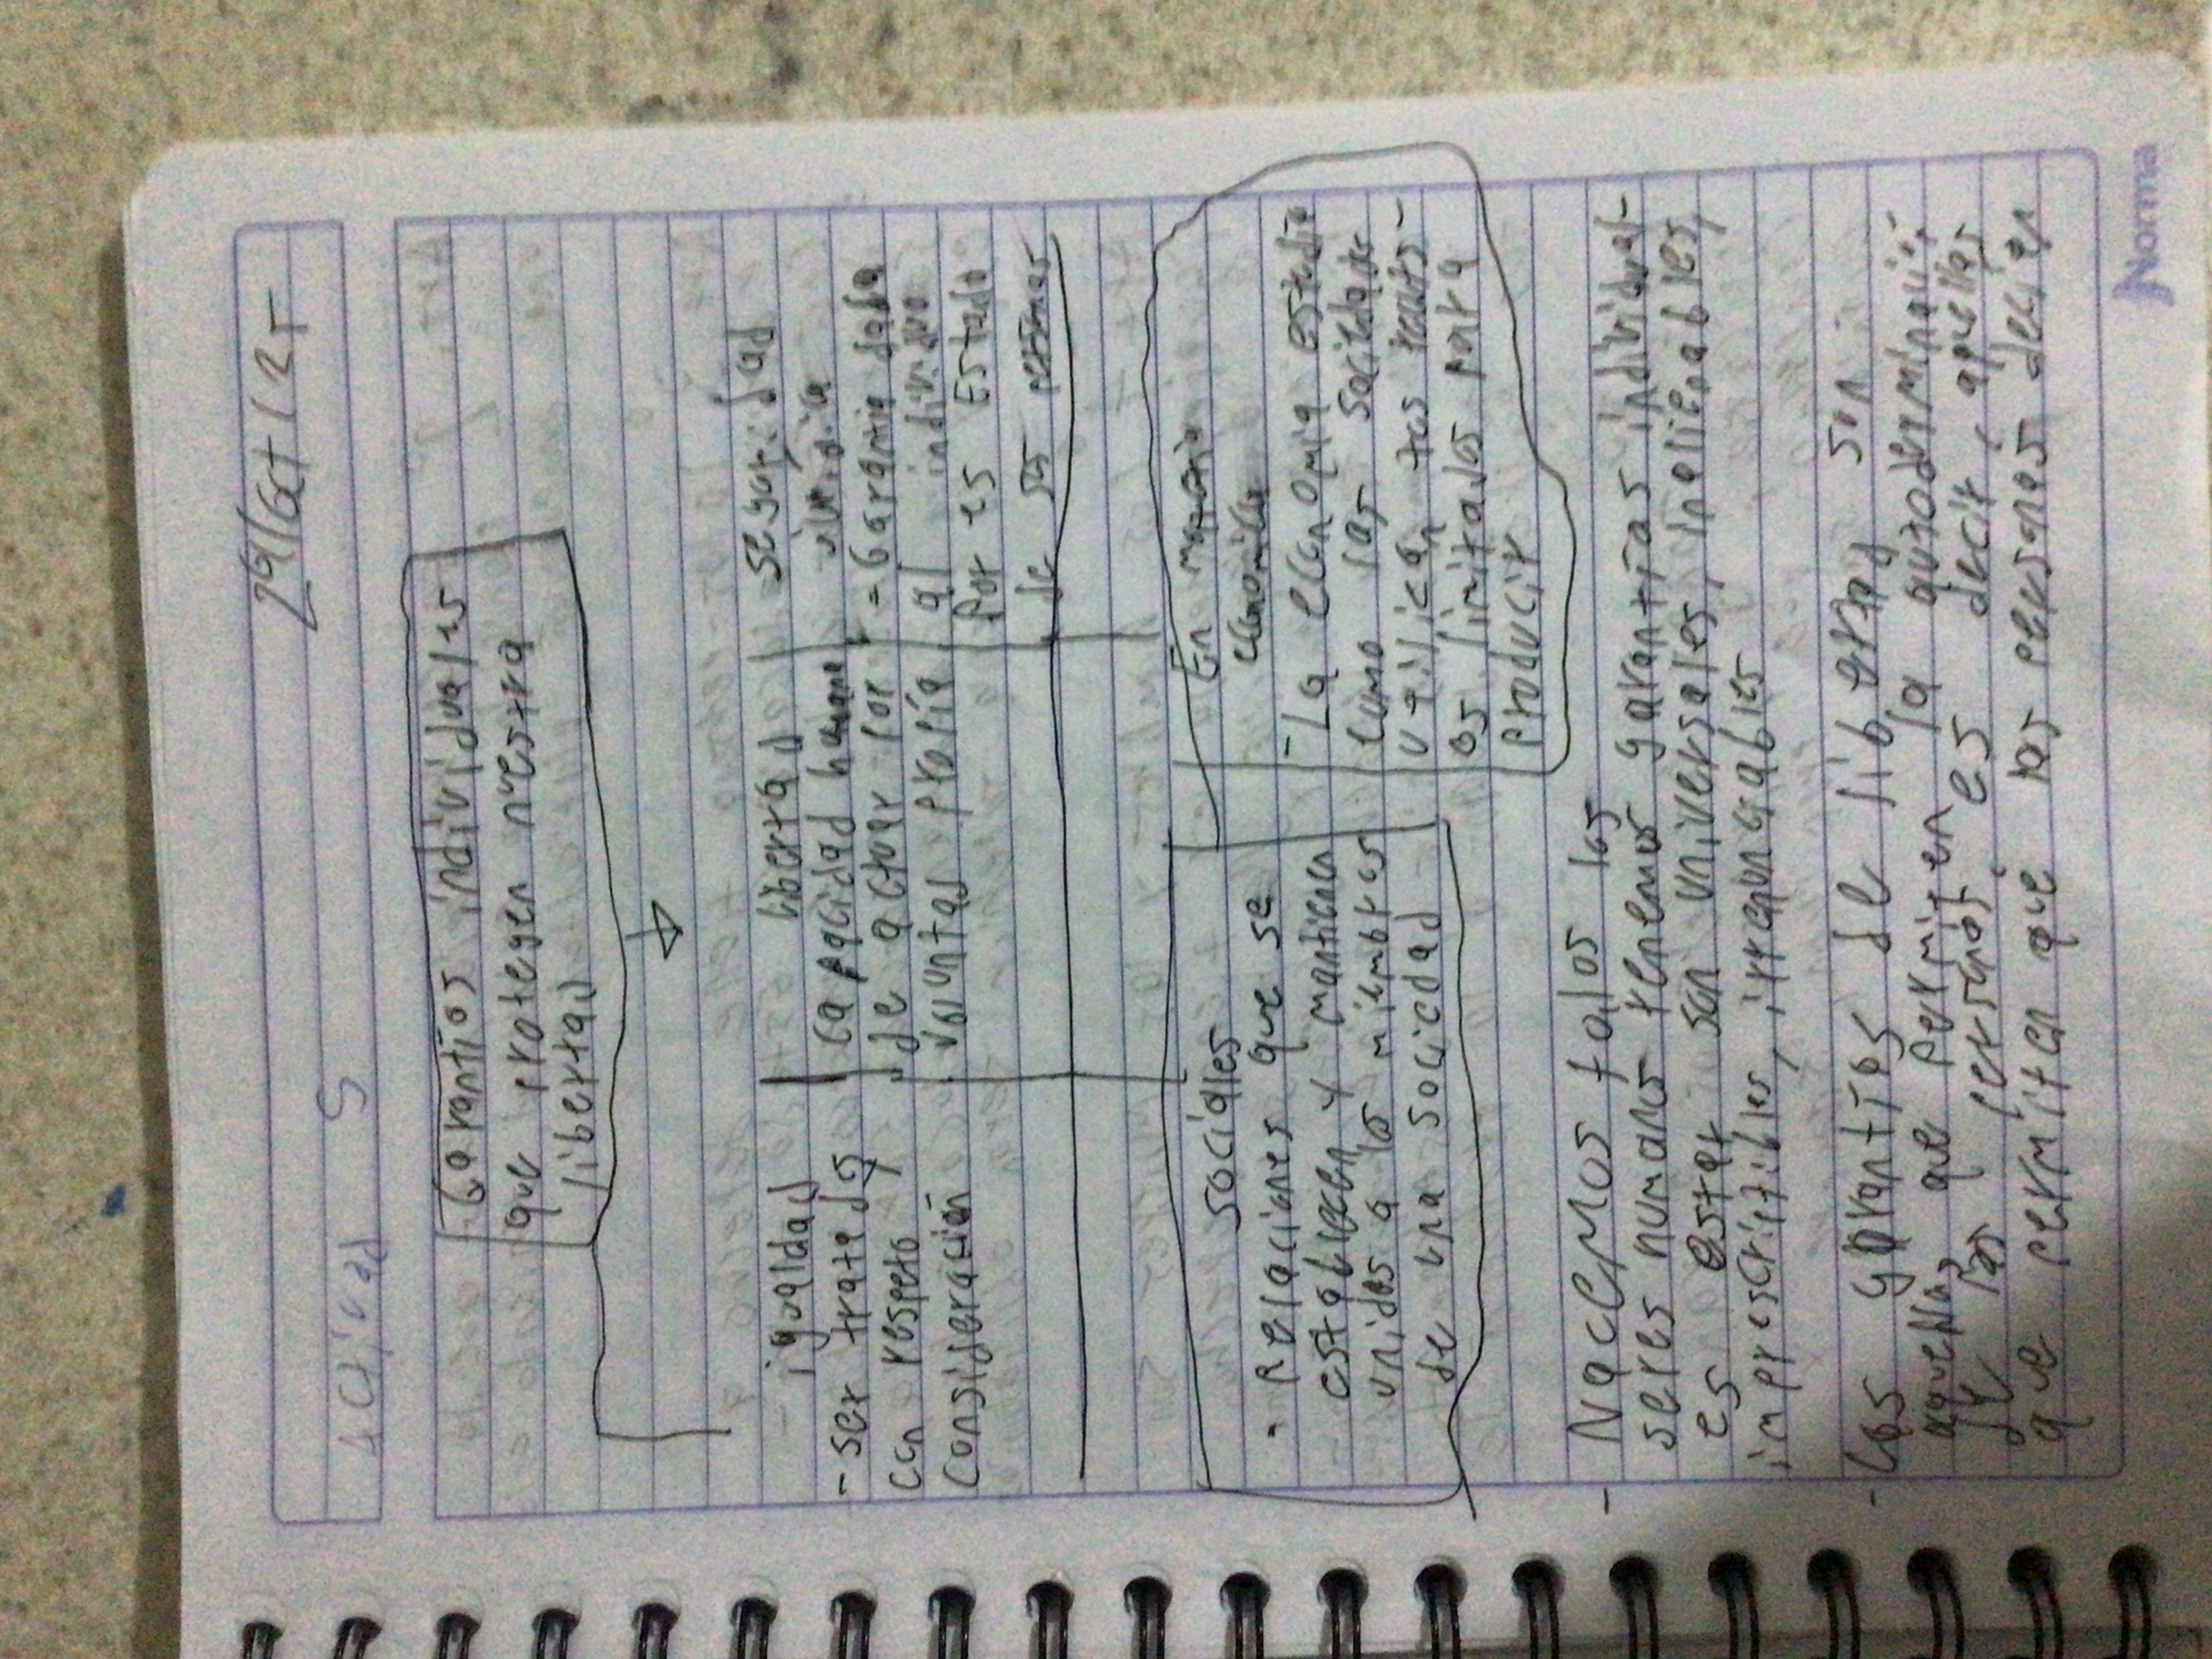 29/oct/2r
Actividad 5
Garantías individuales
que protegen nuestra
libertad
igualdad
-ser tratados
con respeto y
consideración
libertad
capacidad humana
de actuar por
voluntad propia
seguridad
jurídica
= Garamia dada
al individuo
por es Estado
de
sociales
- Relaciones que se
establecen y mantienen
unidos a lo miembros
de una sociedad
En materia
economica
-La economia estudia
como las sociedades
utilizan los recurs-
os limitados para
producir
- Nacemos todos los
seres humanos tenemos garantías individual-
es estar son universales, inalienables,
imprescriptibles, irrenunciables
- Las garantías de libertad son
aquellas que permiten la autoderminació,
de las personas, es decir, aquellas
que permiten que las personas deciden
Norma